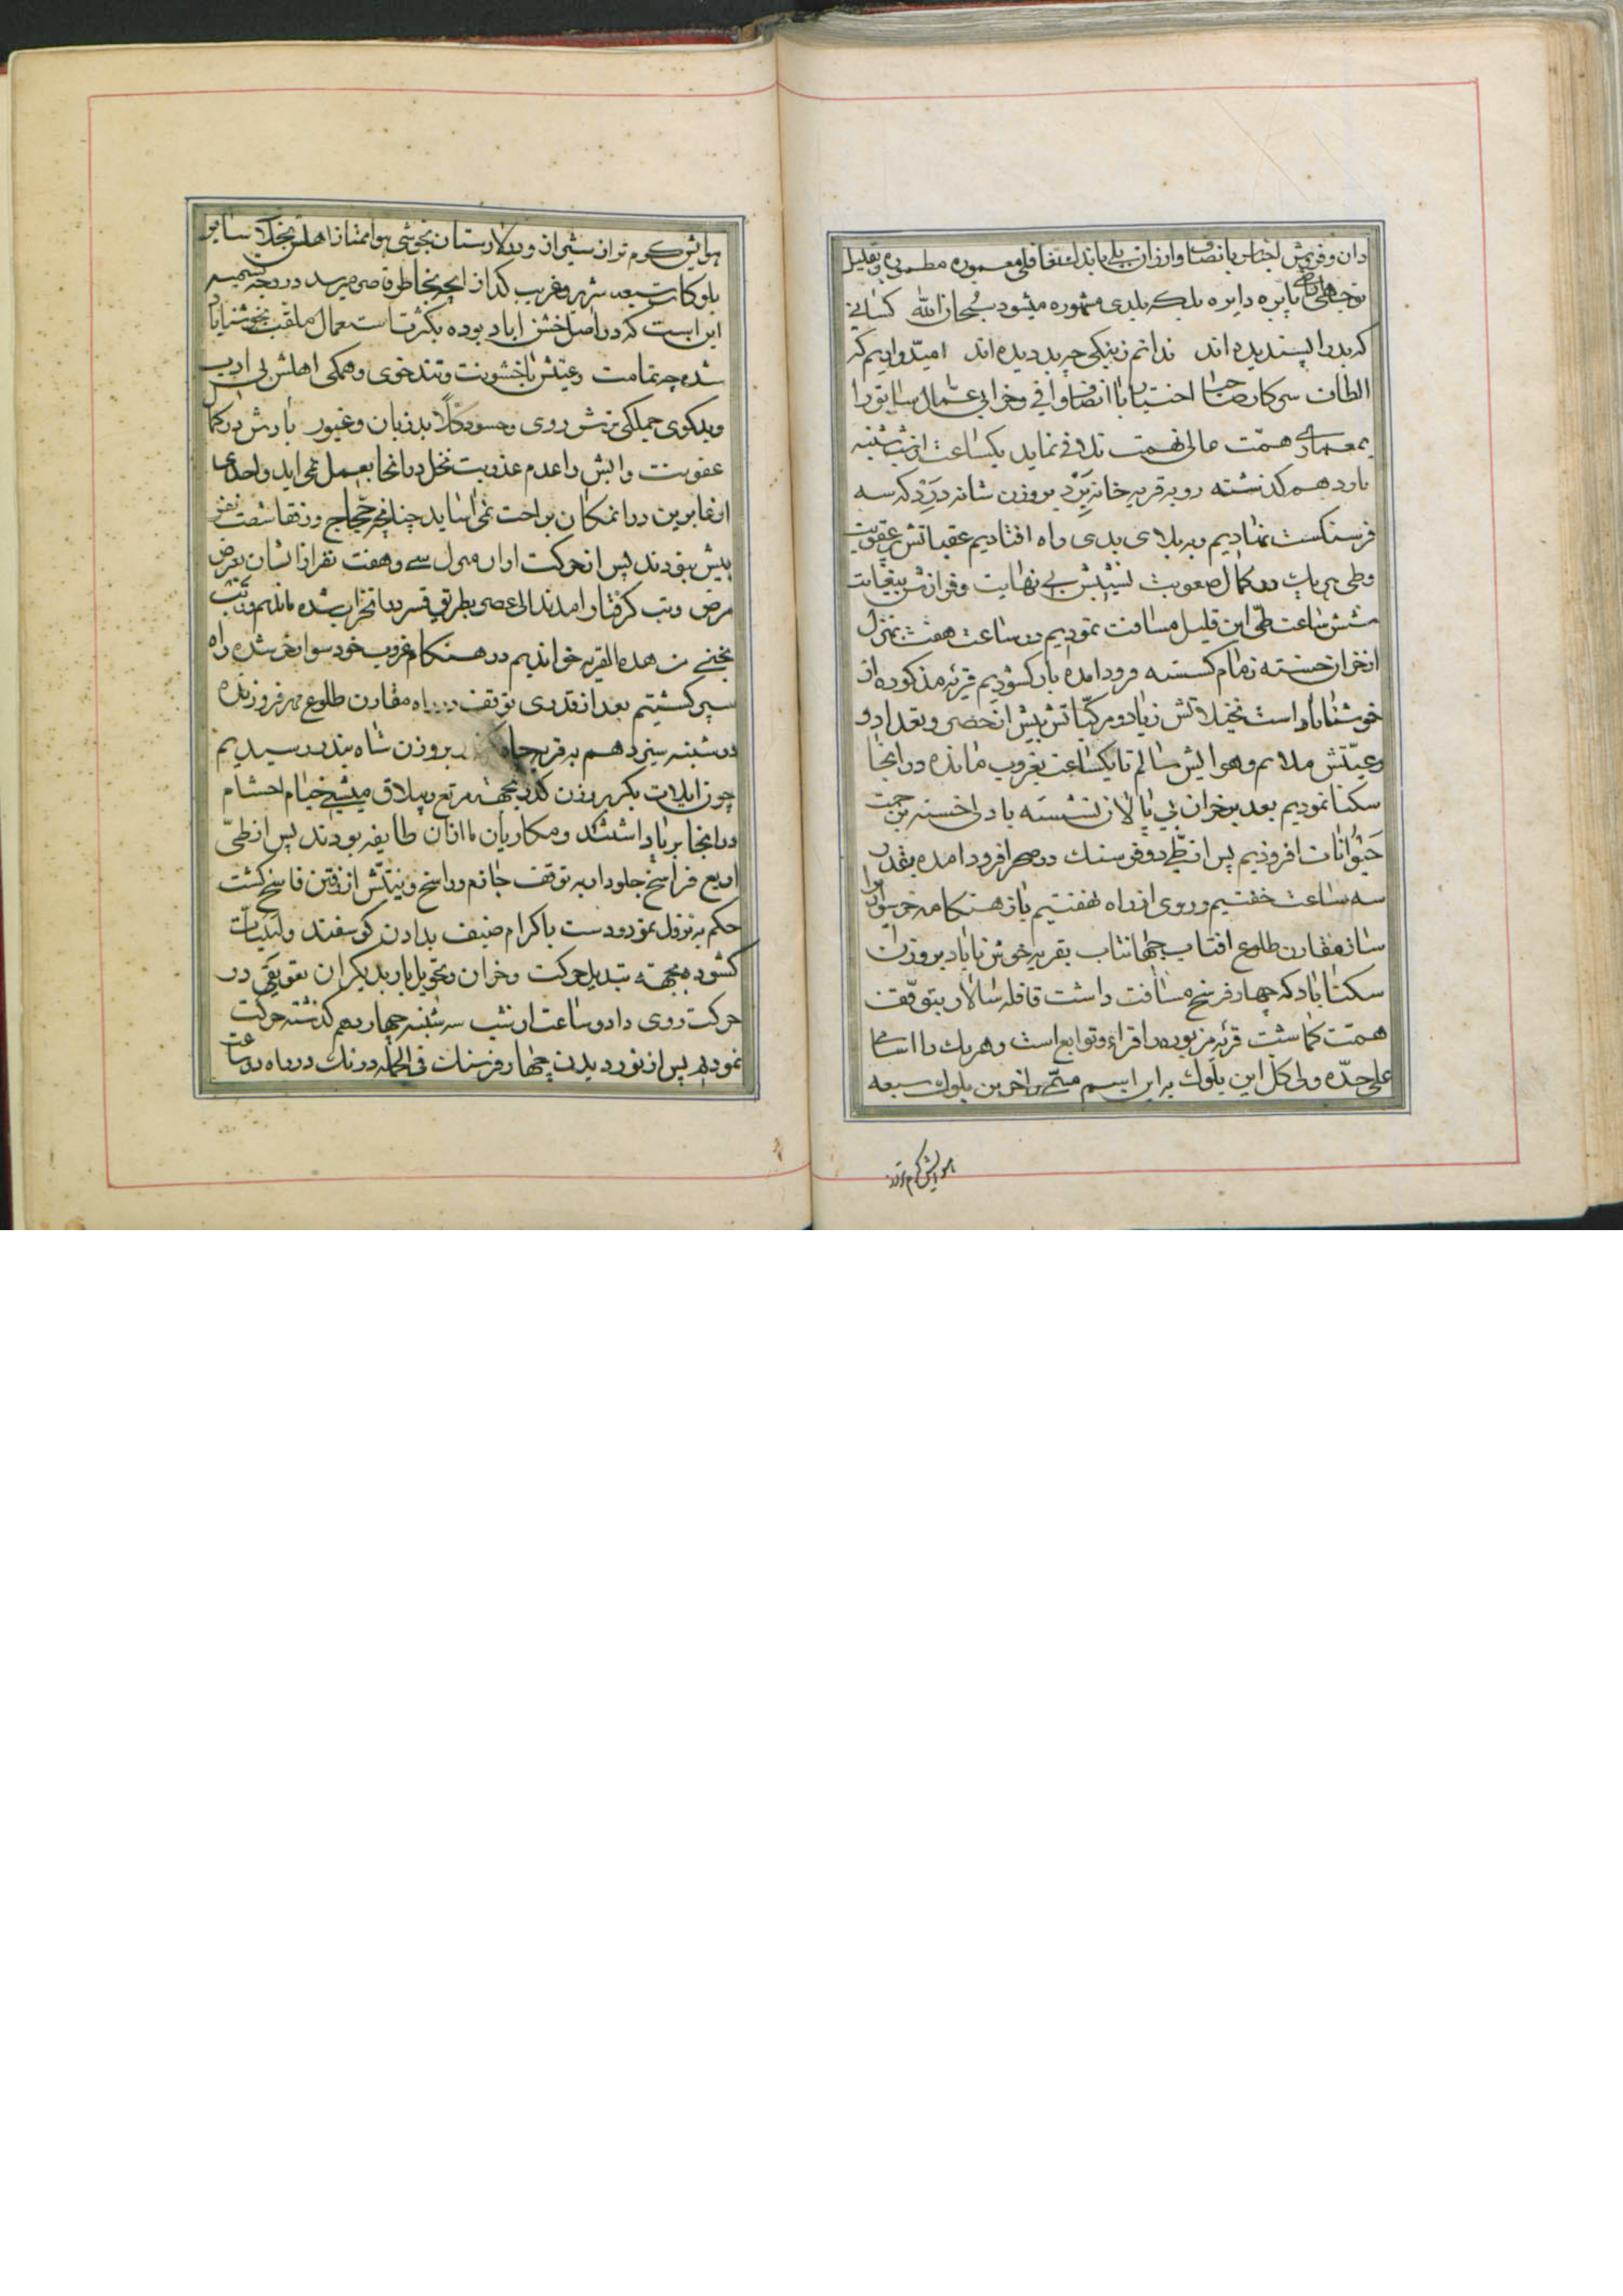 دان و فروش اجناس بانصاف وارزان بلی باندک تغافلی معموره مطموره و بقلیل
توجهی بایره دایره بلکه بلدی مشهوره میشود سبحان الله کسانی
که بد را پسندیده‌اند ندانم زنیکی چه بد دیده‌اند امیدواریم که
الطاف سرکار صاحب اختیار باانصاف وافی و خرابی عمال سابق را
بمعماری همت عالی نهمت تلافی نماید یکساعت از شب شنبه
یازدهم گذشته رو به قریه خانه زرد بروزن شانه درزد که سه
فرسنگست نهادیم و به بلای بدی راه افتادیم عقباتش پر عقوبت
وطی هریک در کمال صعوبت نشیبش بی نهایت و فرازش بیغایت
شش ساعت طی این قلیل مسافت نمودیم در ساعت هفت بمنزل
از خران خسته زمام گسسته فرود آمده بار گشودیم قریه مذکوره از
خوشناباد است نخیلاتش زیاد و مرکباتش بیش از حصر و تعداد و
رعیتش ملایم و هوایش سالم تا یکساعت بغروب مانده در آنجا
سکنا نمودیم بعد بر خران بی پالان نشسته با دلی خسته بر زحمت
حیوانات افزودیم پس از طی دو فرسنک در صحرا فرود آمده بقدر
سه ساعت خفتیم و روی از راه نهفتیم باز هنگامه خر سواری
ساز مقارن طلوع افتاب جهانتاب بقریه خوشناباد بروزن
سکناباد که چهار فرسخ مسافت داشت قافله سالار بتوقف
همت گماشت قریه مزبوره را قراء و توابع است وهریک را اسامی
علیحده ولی کل این بلوک به این اسم مسمی و اخرین بلوک سبعه
هوایش گرم تر از
هوایش گرم تر از شیراز و در لارستان بخوشی هوا ممتاز اهلش بخلاف سایر
بلوکات سبعه شریر و غریب گداز آنچه بخاطر قاصر میرسد در وجه تسمیه
این است که در اصل خشن اباد بوده بکثرت استعمال ملقب بخوشناباد
شده چه تمامت رعیتش باخشونت و تندخوی و همگی اهلش بی ادب
وبدگوی جملگی ترش روی و حسود کلا بدزبان و غیور بارش در کمال
عفونت و آبش را عدم عذوبت نخل در آنجا بعمل نمی اید و احدی
از عابرین در آنمکان براحت نمی اساید چنانچه حجاج و رفقا شصت نفر
بیش نبودند پس از حرکت از آن منزل سی و هفت نفر از ایشان بعرض
مرض و تب گرفتار آمدند الی عصر بطریق قسر در آنخراب شده ماندیم و رب
نجنی من هذه القریه خواندیم در هنگام غروب خود سوار خر شده راه
سپر گشتیم بعد از قدری توقف در راه مقارن طلوع مهر فروزنده
در شنبه سیزدهم به قریه چاه بروزن شاه بندر رسیدیم
چون ایلات بکر بروزن کذر بجهة مرتع و ییلاق میشی خیام احشام
در آنجا برپا داشتند و مکاریان ما از آن طایفه بودند پس از طی
اربع فراسخ جلودار به توقف جازم و راسخ و نیتش از رفتن فاسخ گشت
حکم به نزول نمود و دست باکرام ضیف بدادن گوسفند و لبنیات
گشود بجهة تبدیل حرکت و خران و تحویل بار بدیگران تعویقی در
حرکت روی داد دو ساعت از شب سه شنبه چهاردهم گذشته حرکت
نمودیم پس از نوردیدن چهار فرسنک فی الجمله درنک در راه دو ساعت